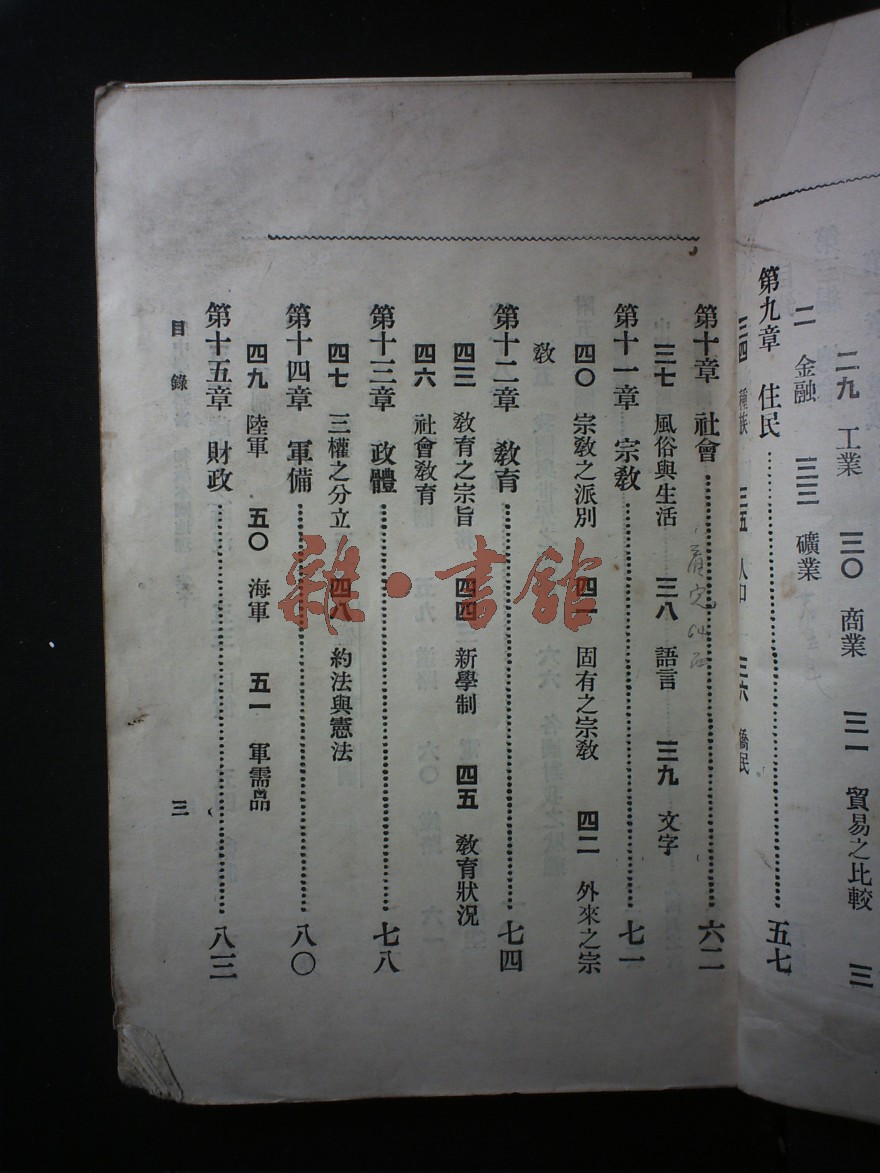 二九 工業 三〇 商業 三一 貿易之比較 三
二 金融 三三 礦業
第九章 住民 五七
三四 種族 三五 人口 三六 僑民
第十章 社會 六二
三七 風俗與生活 三八 語言 三九 文字
第十一章 宗教 七一
四〇 宗教之派別 四一 固有之宗教 四二 外來之宗
教
第十二章 教育 七四
四三 教育之宗旨 四四 新學制 四五 教育狀況
四六 社會教育
第十三章 政體 七八
四七 三權之分立 四八 約法與憲法
第十四章 軍備 八〇
四九 陸軍 五〇 海軍 五一 軍需品
第十五章 財政 八三
目錄 三
雜·書館